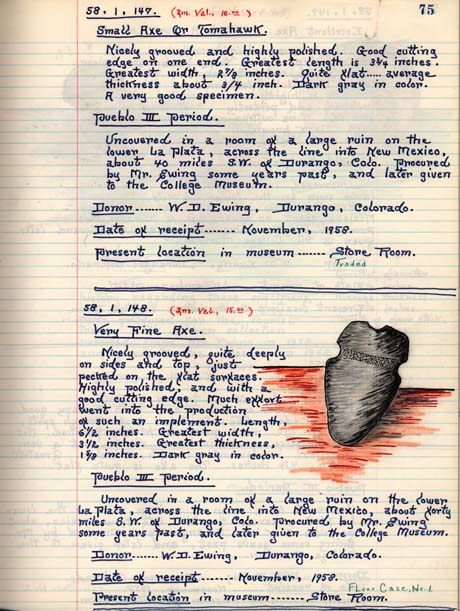 75
58. 1. 147. (Ins. Val., 10.00)
Small Axe Or Tomahawk.
Nicely grooved and highly polished. Good cutting
edge on one end. Greatest length is 3 3/4 inches.
Greatest width, 2 7/8 inches. Quite flat..... average
thickness about 3/4 inch. Dark gray in color.
A very good specimen.
Pueblo III Period.
Uncovered in a room of a large ruin on the
lower La Plata, across the line into New Mexico,
about 40 miles S.W. of Durango, Colo. Procured
by Mr. Ewing some years past, and later given
to the College Museum.
Donor...... W. D. Ewing, Durango, Colorado.
Date of receipt....... November, 1958.
Present location in museum...... Store Room.
Traded
58. 1. 148. (Ins. Val., 15.00)
Very Fine Axe.
Nicely grooved, quite deeply
on sides and top, just
pecked on the flat surfaces.
Highly polished, and with a
good cutting edge. Much effort
went into the production
of such an implement. Length,
6 1/2 inches. Greatest width,
3 1/2 inches. Greatest thickness,
inches. Dark gray in color.
Pueblo III Period.
Uncovered in a room of a large ruin on the lower
La Plata, across the line into New Mexico, about forty
miles S.W. of Durango, Colo. Procured by Mr. Ewing
some years past, and later given to the College Museum.
Donor...... W. D. Ewing, Durango, Colorado.
Date of receipt....... November, 1958.
Floor Case, No. 1
Present location in museum...... Store Room.